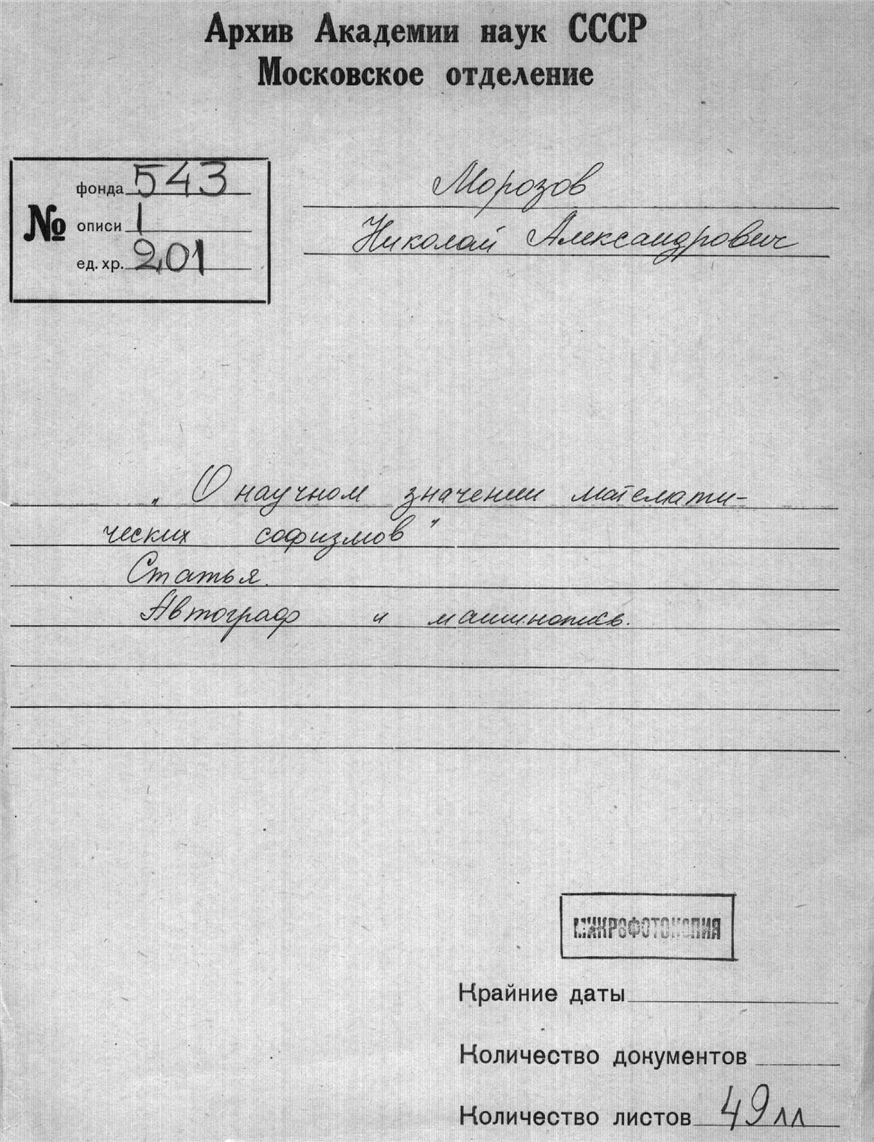 Архив Академии наук СССР
Московское отделение
№
фонда 543
описи 1
ед. хр. 201
Морозов
Николай Александрович
„О научном значении математи-
ческих софизмов"
Статья.
Автограф и машинопись.
МИКРОФОТОКОПИЯ
Крайние даты
Количество документов
Количество листов 49 лл